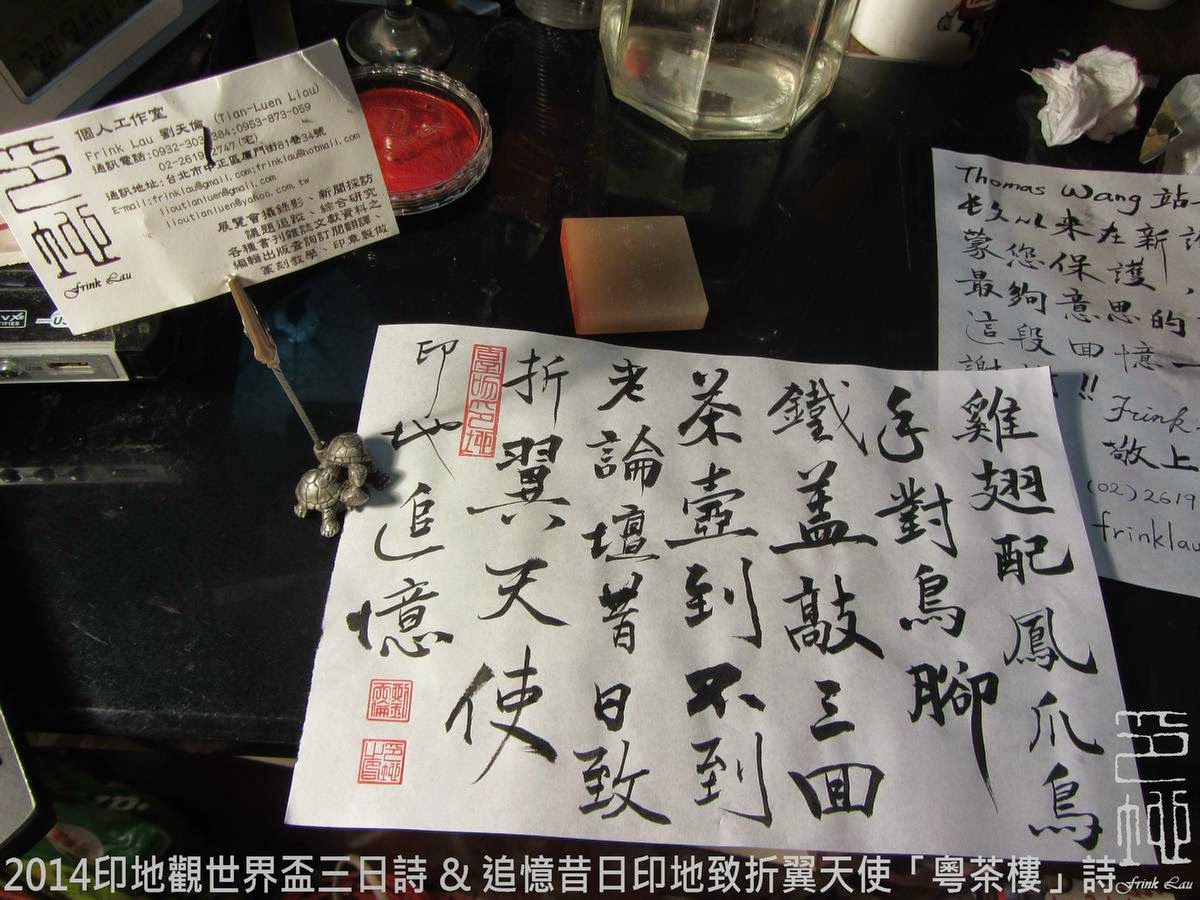 個人工作室
Frink Lau 劉天倫 (Tian-Luen Liou)
通訊電話:0932-30 384;0953-873-059
02-2619 2747(宅)
通訊地址:台北市中正區廈門街81巷34號
E-mail:frinklau@gmail.com;frinklau@hotmail.com
lioutianluen@gmail.com
lioutianluen@yahoo.com.tw
展覽會攝錄影、新聞採訪
議題追蹤、綜合研究
各種書刊雜誌文獻資料之
編輯出版查詢訂閱翻譯、
篆刻教學、印章製做
Frink Lau
Thomas Wang 站
長久以來在新
蒙您保護，
最夠意思的
這段回憶一
謝 !!
Frink
敬上
(02)2619
frinklau
雞翅配鳳爪鳥
手對鳥腳
鐵蓋敲三回
茶壺到不到
老論壇昔日致
折翼天使
印地追憶
2014印地觀世界盃三日詩 & 追憶昔日印地致折翼天使「粵茶樓」詩
Frink Lau